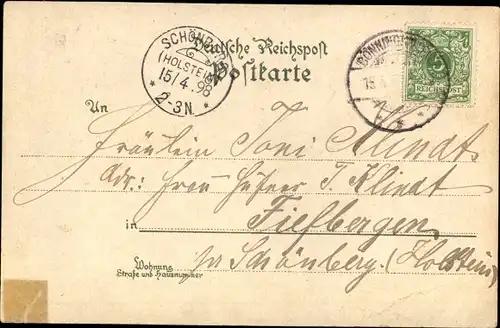 Deutsche Reichspost
Postkarte
SCHÖNBERG
(HOLSTEIN)
15/4.98
* 2-3N. *
15
5
REICHSPOST
An
Fräulein Toni Klindt
Adr: Frau Hufner J. Klindt
in Fiefbergen
pr Schönberg (Holstein)
Wohnung
Straße und Hausnummer